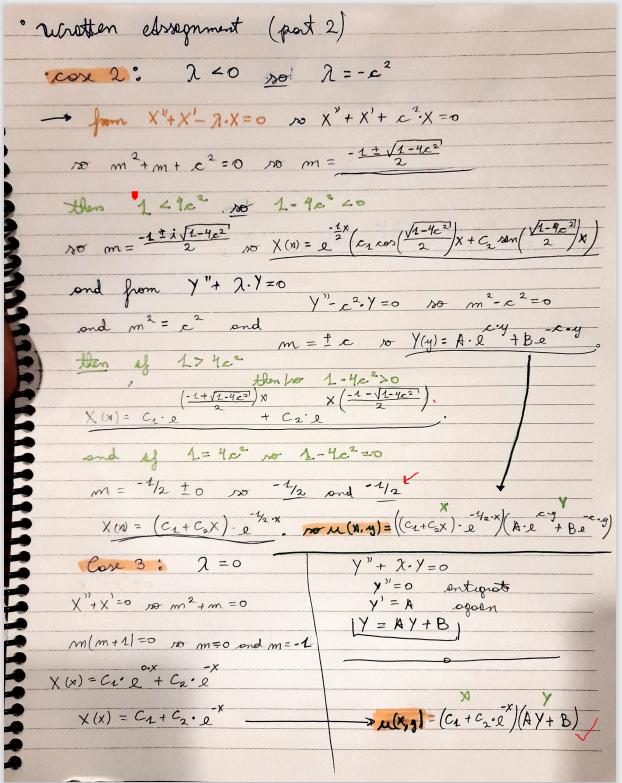 • Written Assignment (part 2)
case 2: λ < 0 so: λ = -c²
→ from X'' + X' - λ·X = 0 so X'' + X' + c²·X = 0
so m² + m + c² = 0 so m = (-1 ± √(1-4c²))/2
then 1 < 4c² so 1 - 4c² < 0
so m = (-1 ± i√(1-4c²))/2 so X(x) = e^(-1/2 x) (C₁ cos(√(1-4c²)/2)x + C₂ sen(√(1-4c²)/2)x)
and from Y'' + λ·Y = 0
Y'' - c²·Y = 0 so m² - c² = 0
and m² = c² and m = ± c so Y(y) = A·e^(c·y) + B e^(-c·y).
then if 1 > 4c²
then/so 1 - 4c² > 0
X(x) = C₁·e^((-1+√(1-4c²))/2)x + C₂·e^x((-1-√(1-4c²))/2).
and if 1 = 4c² so 1 - 4c² = 0
m = -1/2 ± 0 so -1/2 and -1/2 ✓
X(x) = (C₁ + C₂X)·e^(-1/2·x). so u(x,y) = ((C₁+C₂X)·e^(-1/2·x))(A·e^(c·y) + Be^(-c·y))
X Y
Case 3: λ = 0
X'' + X' = 0 so m² + m = 0
m(m+1) = 0 so m = 0 and m = -1
X(x) = C₁·e^(0·x) + C₂·e^(-x)
X(x) = C₁ + C₂·e^(-x)
Y'' + λ·Y = 0
Y'' = 0 integrate
Y' = A again
Y = AY + B
X Y
→ u(x,y) = (C₁ + C₂·e^(-x))(AY + B) ✓